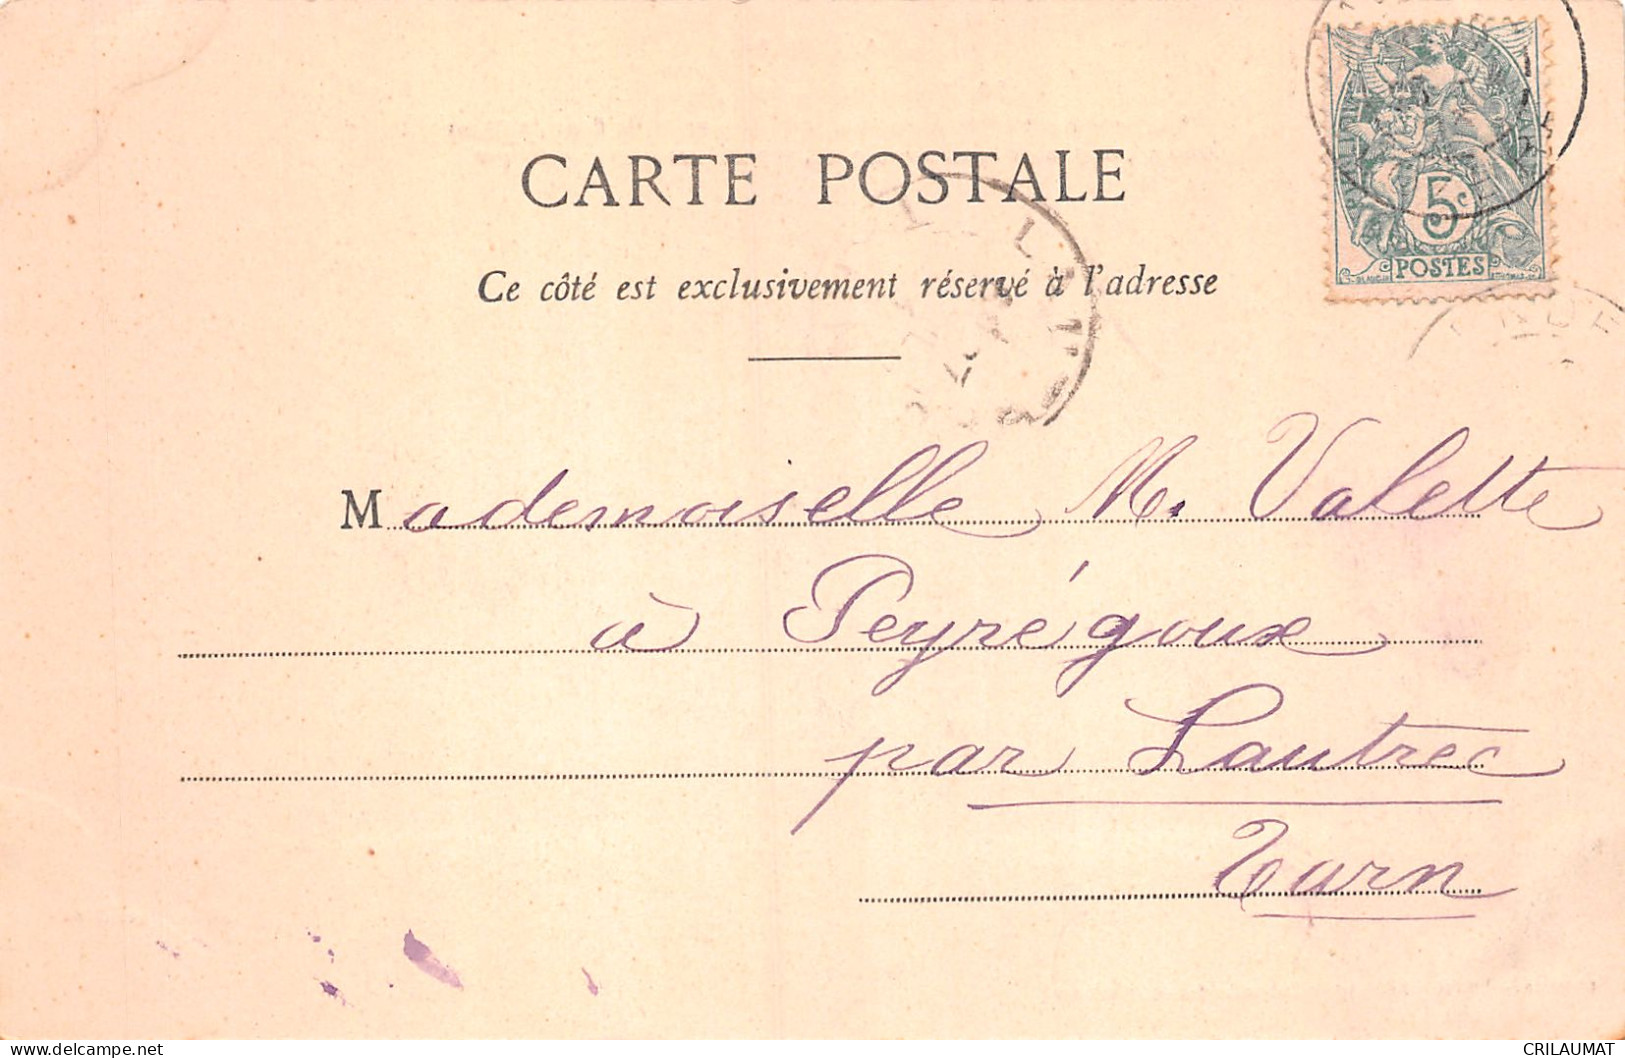 CARTE POSTALE
5c
POSTES
Ce côté est exclusivement réservé à l'adresse
Mademoiselle M. Valette
à Peyrégoux
par Lautrec
Tarn
CRILAUMAT